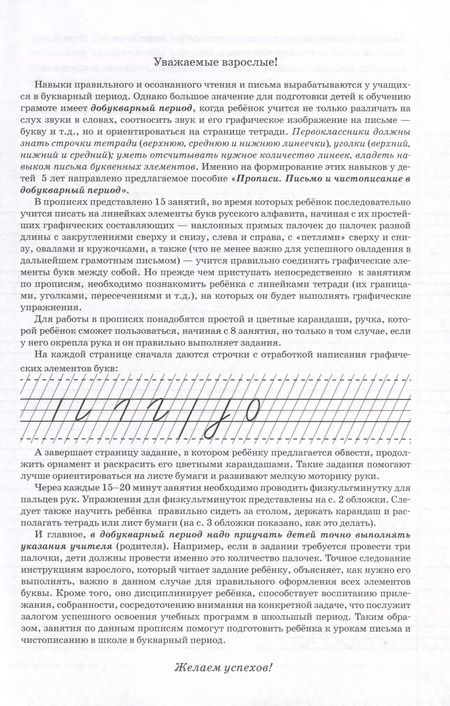 Уважаемые взрослые!
Навыки правильного и осознанного чтения и письма вырабатываются у учащих-
ся в букварный период. Однако большое значение для подготовки детей к обучению
грамоте имеет добукварный период, когда ребёнок учится не только различать на
слух звуки в словах, соотносить звук и его графическое изображение на письме —
букву и т.д., но и ориентироваться на странице тетради. Первоклассники должны
знать строчки тетради (верхнюю, среднюю и нижнюю линеечки), уголки (верхний,
нижний и средний); уметь отсчитывать нужное количество линеек, владеть на-
выком письма буквенных элементов. Именно на формирование этих навыков у де-
тей 5 лет направлено предлагаемое пособие «Прописи. Письмо и чистописание в
добукварный период».
В прописях представлено 15 занятий, во время которых ребёнок последовательно
учится писать на линейках элементы букв русского алфавита, начиная с их простей-
ших графических составляющих — наклонных прямых палочек до палочек разной
длины с закруглениями сверху и снизу, слева и справа, с «петлями» сверху и сни-
зу, овалами и кружочками, а также (что не менее важно для успешного овладения в
дальнейшем грамотным письмом) — учится правильно соединять графические эле-
менты букв между собой. Но прежде чем приступать непосредственно к занятиям
по прописям, необходимо познакомить ребёнка с линейками тетради (их граница-
ми, уголками, пересечениями и т.д.), на которых он будет выполнять графические
упражнения.
Для работы в прописях понадобятся простой и цветные карандаши, ручка, кото-
рой ребёнок сможет пользоваться, начиная с 8 занятия, но только в том случае, если
у него окрепла рука и он правильно выполняет задания.
На каждой странице сначала даются строчки с отработкой написания графиче-
ских элементов букв:
А завершает страницу задание, в котором ребёнку предлагается обвести, продол-
жить орнамент и раскрасить его цветными карандашами. Такие задания помогают
лучше ориентироваться на листе бумаги и развивают мелкую моторику руки.
Через каждые 15–20 минут занятия необходимо проводить физкультминутку для
пальцев рук. Упражнения для физкультминуток представлены на с. 2 обложки. Сле-
дует также научить ребёнка правильно сидеть за столом, держать карандаш и рас-
полагать тетрадь или лист бумаги (на с. 3 обложки показано, как это делать).
И главное, в добукварный период надо приучать детей точно выполнять
указания учителя (родителя). Например, если в задании требуется провести три
палочки, дети должны провести именно это количество палочек. Точное следование
инструкциям взрослого, который читает задание ребёнку, объясняет, как нужно его
выполнять, важно в данном случае для правильного оформления всех элементов
буквы. Кроме того, оно дисциплинирует ребёнка, способствует воспитанию приле-
жания, собранности, сосредоточению внимания на конкретной задаче, что послужит
залогом успешного освоения учебных программ в школьный период. Таким обра-
зом, занятия по данным прописям помогут подготовить ребёнка к урокам письма и
чистописанию в школе в букварный период.
Желаем успехов!